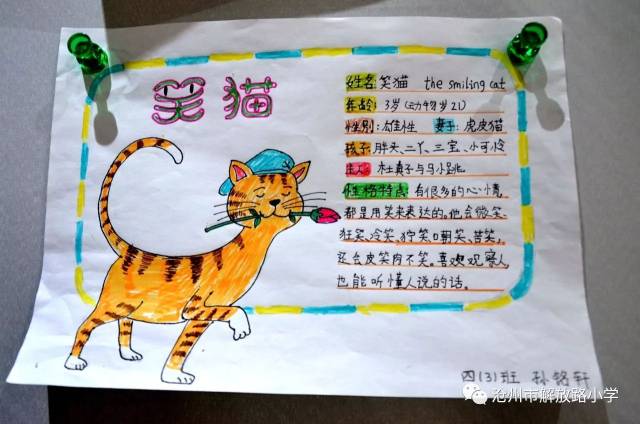 笑猫
姓名:笑猫 the smiling cat
年龄:3岁(动物岁21)
性别:雄性 妻子:虎皮猫
孩子:胖头、二丫、三宝、小可怜
主人:杜真子与马小跳
性格特点:有很多的心情
都是用笑来表达的。他会微笑、
狂笑、冷笑、狞笑、嘲笑、苦笑,
还会皮笑肉不笑。喜欢观察人,
也能听懂人说的话。
四(3)班 孙铭轩
沧州市解放路小学